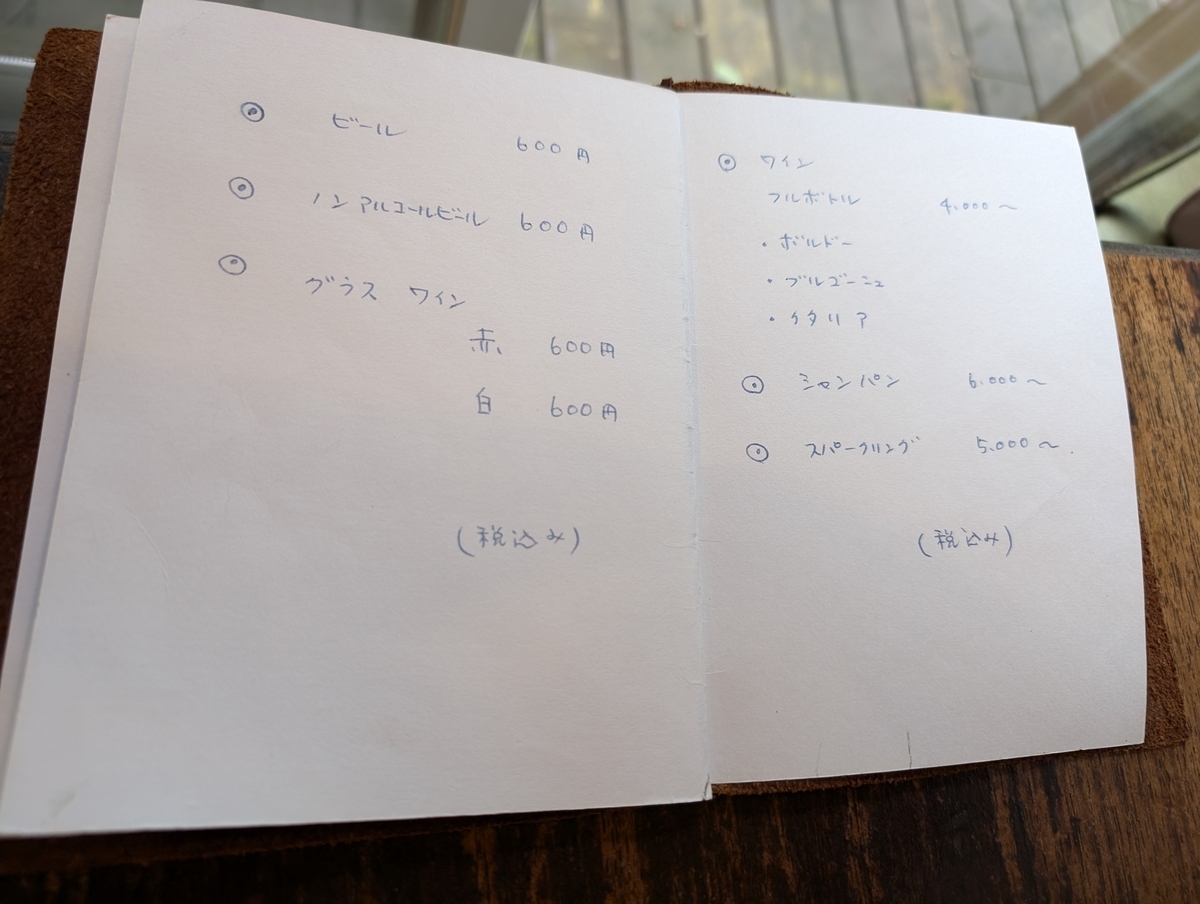 ◉ ビール 600円
◉ ノンアルコールビール 600円
◉ グラス ワイン
赤 600円
白 600円
(税込み)
◉ ワイン
フルボトル 4.000〜
・ボルドー
・ブルゴーニュ
・イタリア
◉ シャンパン 6.000〜
◉ スパークリング 5.000〜.
(税込み)